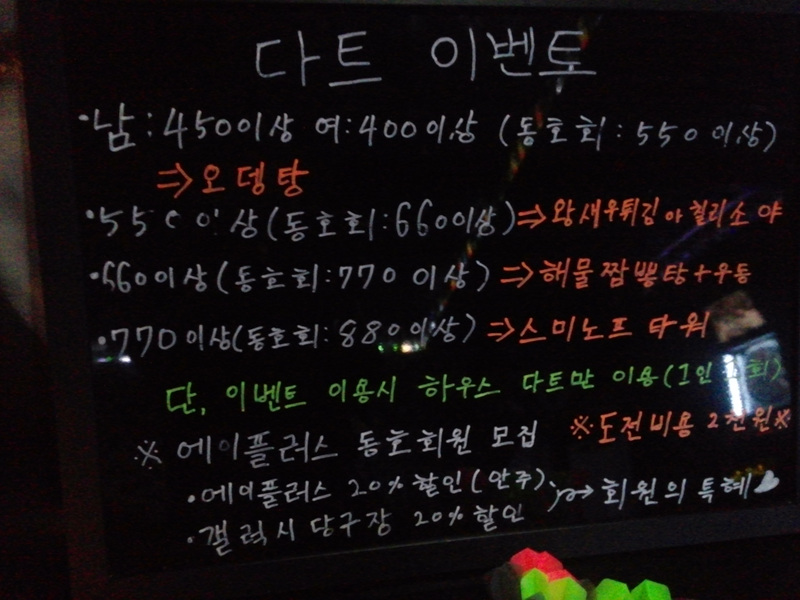 다트 이벤트
·남:450이상 여:400이상 (동호회:550이상)
⇒오뎅탕
·550이상(동호회:660이상)⇒왕새우튀김 아 칠리소야
·660이상(동호회:770이상)⇒해물짬뽕탕+우동
·770이상(동호회:880이상)⇒스미노프 타워
단, 이벤트 이용시 하우스 다트만 이용(1인 회)
※도전비용 2천원※
※에이플러스 동호회원 모집
·에이플러스 20% 할인(안주)
·갤럭시 당구장 20% 할인
→회원의 특혜